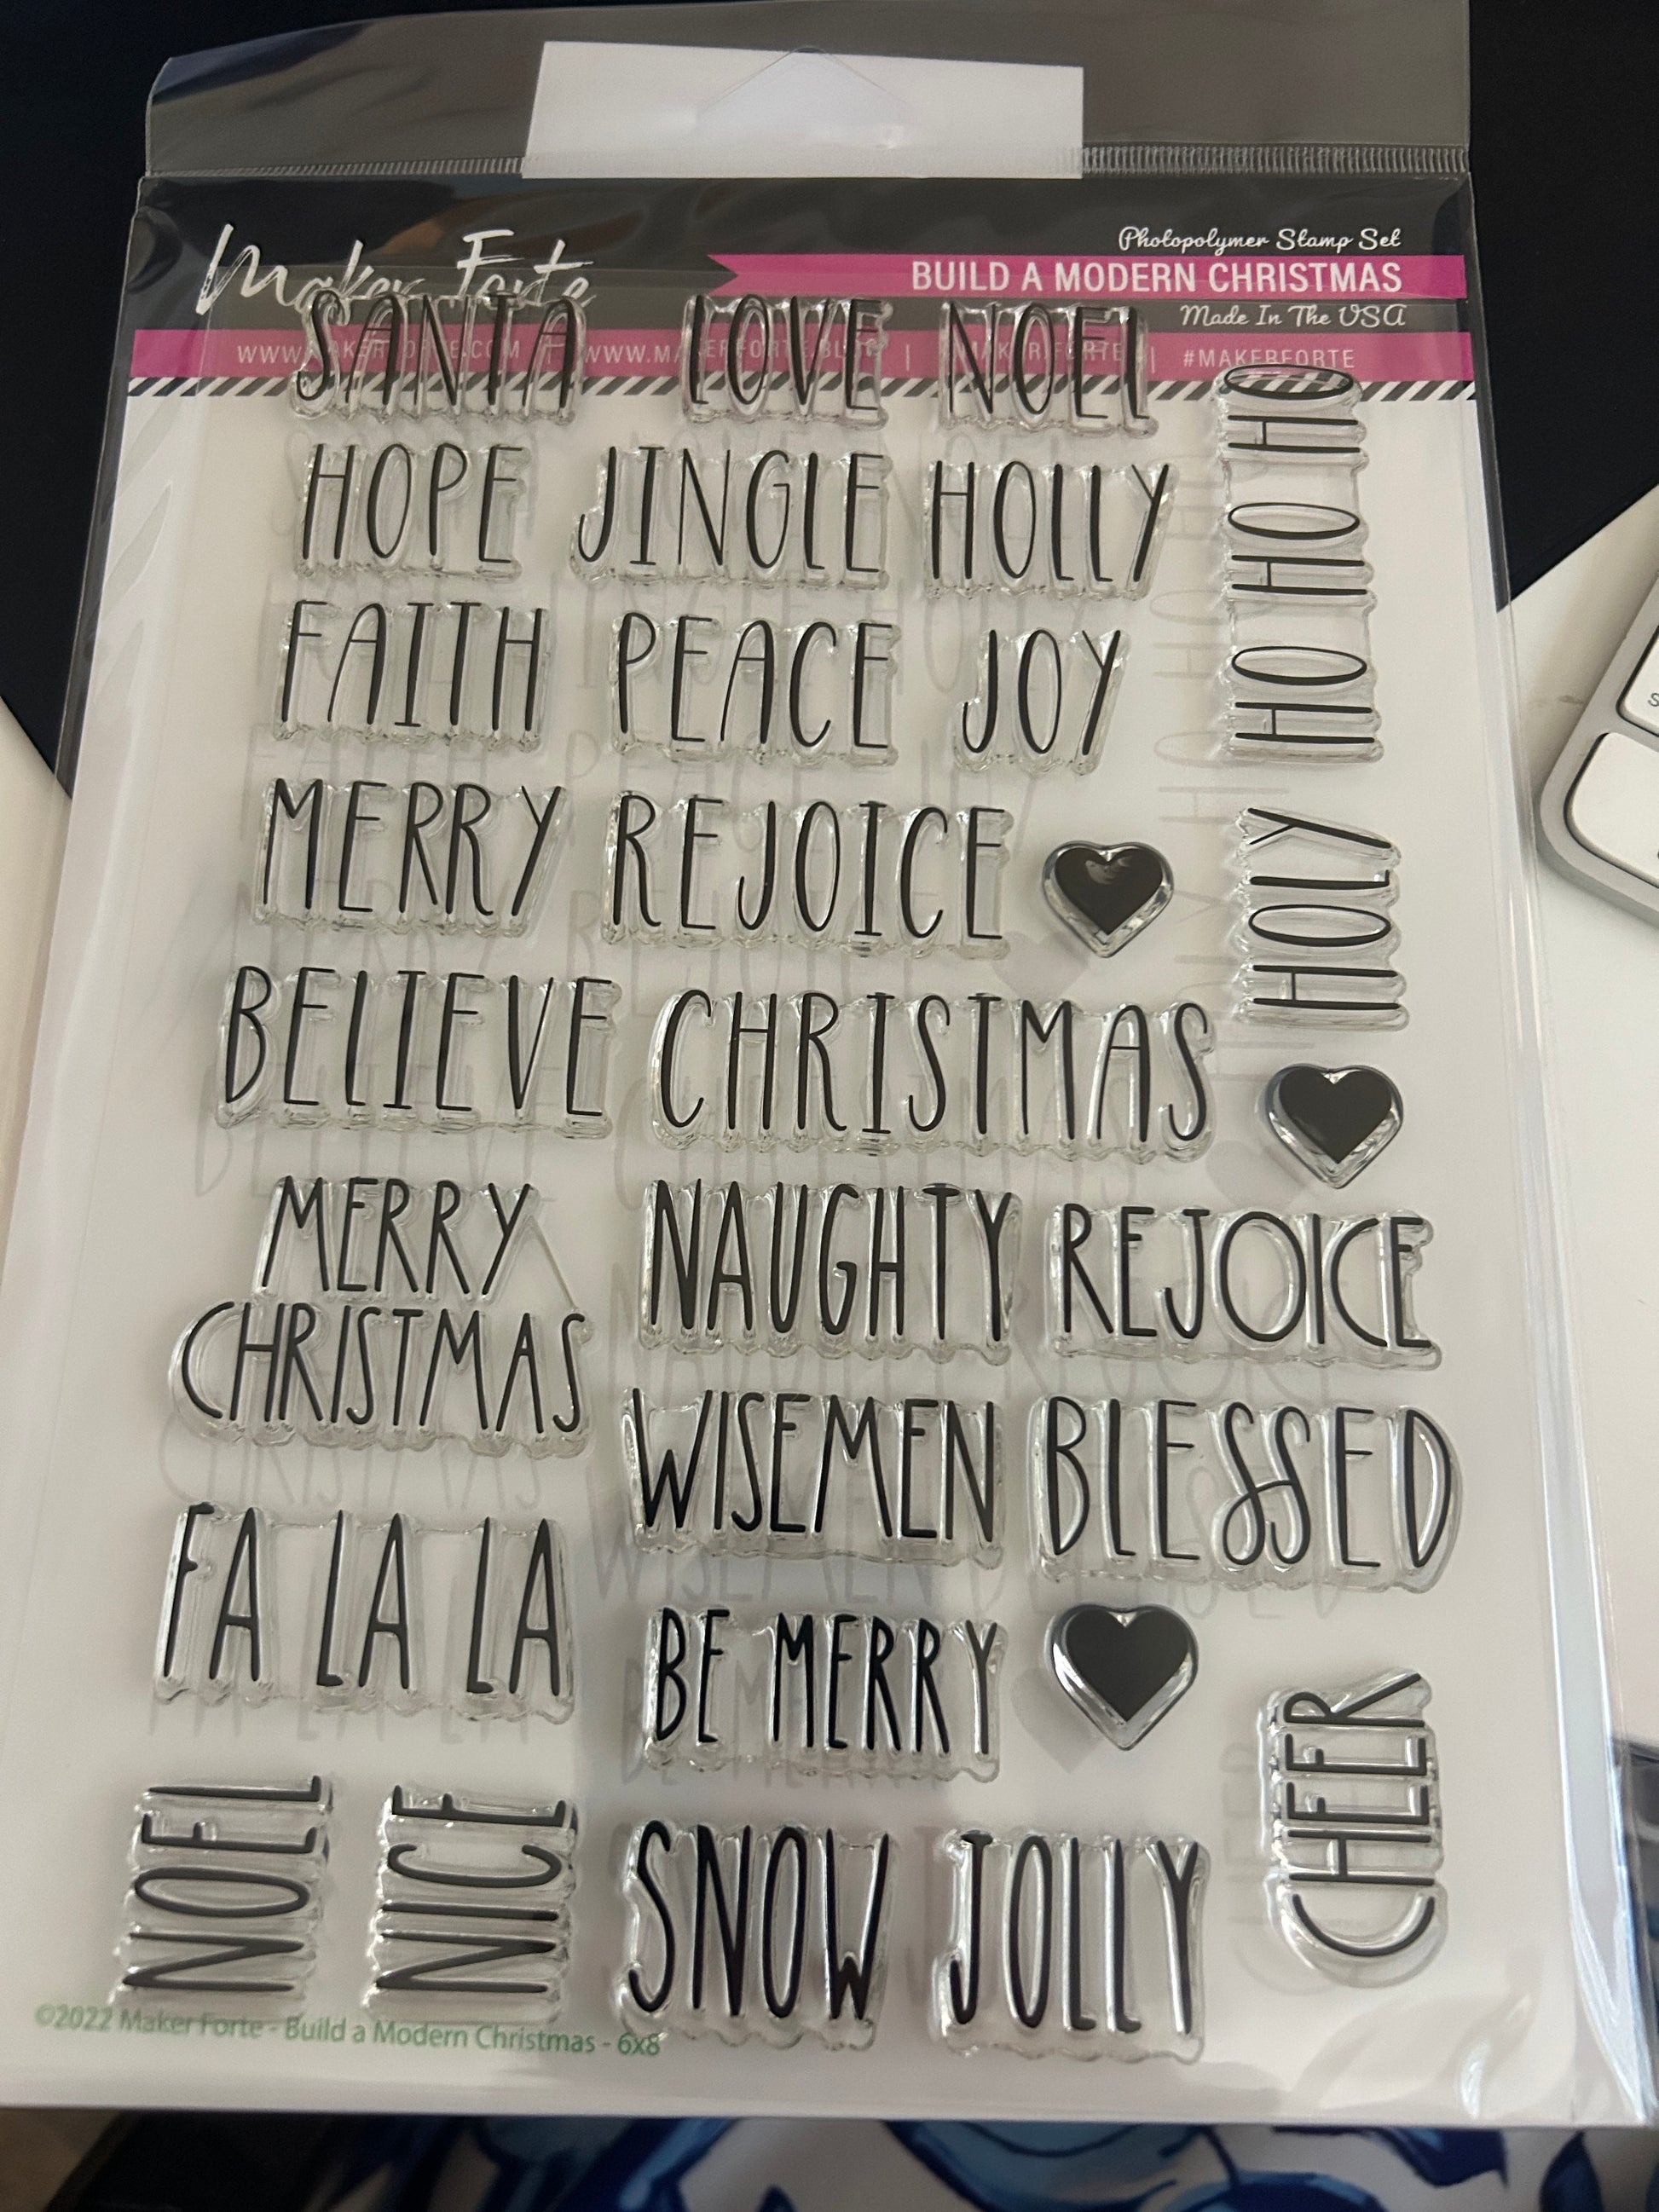 Maker Forte
Photopolymer Stamp Set
BUILD A MODERN CHRISTMAS
Made In The USA
WWW.MAKERFORTE.COM | WWW.MAKERFORTE.BLOG | @MAKER.FORTE | #MAKERFORTE
SANTA LOVE NOEL
HO HO HO
HOPE JINGLE HOLLY
FAITH PEACE JOY
MERRY REJOICE
HOLY
BELIEVE CHRISTMAS
MERRY
CHRISTMAS
NAUGHTY REJOICE
WISEMEN BLESSED
FA LA LA
BE MERRY
CHEER
NOEL NICE SNOW JOLLY
©2022 Maker Forte - Build a Modern Christmas - 6x8